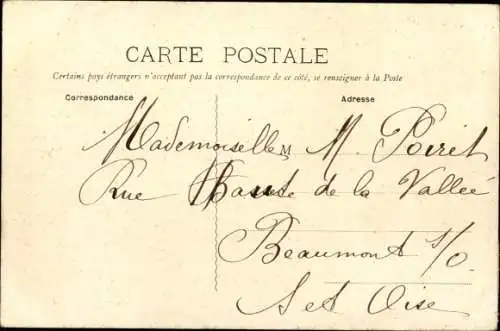 CARTE POSTALE
Certains pays étrangers n'acceptant pas la correspondance de ce côté, se renseigner à la Poste
Correspondance Adresse
Mademoiselle M M. Poiret
Rue Haute de la Vallée
Beaumont s/O.
S et Oise